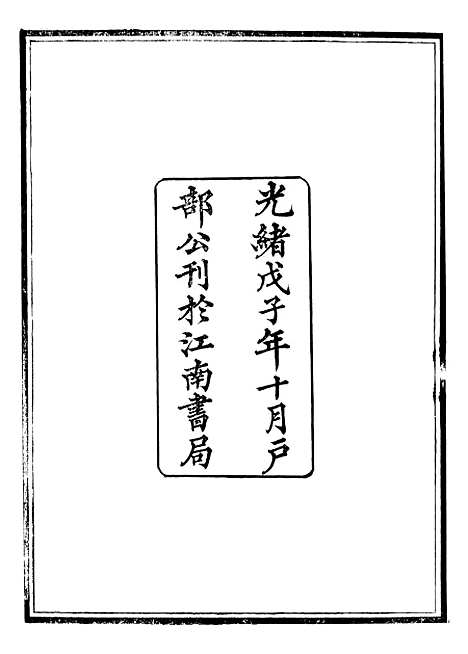 光緒戊子年十月戶
部公刊於江南書局